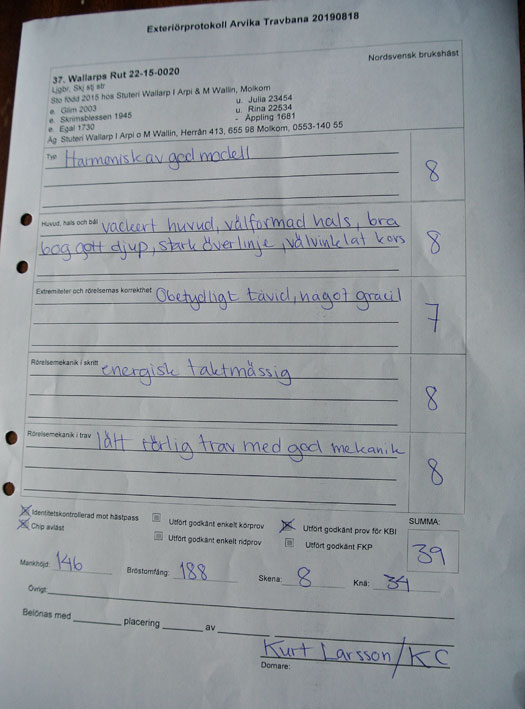 Exteriörprotokoll Arvika Travbana 20190818
Nordsvensk brukshäst
37. Wallarps Rut 22-15-0020
Ljgbr, Skj stj str
Sto född 2015 hos Stuteri Wallarp I Arpi & M Wallin, Molkom
e. Glim 2003 u. Julia 23454
e. Skrimsblessen 1945 u. Rina 22534
e. Egal 1730 - Äppling 1681
Äg Stuteri Wallarp I Arpi o M Wallin, Herrån 413, 655 98 Molkom, 0553-140 55
Typ Harmonisk av god modell 8
Huvud, hals och bål vackert huvud, välformad hals, bra
bog gott djup, stark överlinje, välvinklat kors 8
Extremiteter och rörelsernas korrekthet Obetydligt tåvid, något gracil 7
Rörelsemekanik i skritt energisk taktmässig 8
Rörelsemekanik i trav lätt rörlig trav med god mekanik 8
Identitetskontrollerad mot hästpass Utfört godkänt enkelt körprov Utfört godkänt prov för KBI SUMMA:
Chip avläst Utfört godkänt enkelt ridprov Utfört godkänt FKP 39
Mankhöjd: 146 Bröstomfång: 188 Skena: 8 Knä: 34
Övrigt:
Belönas med placering av
Kurt Larsson/KC
Domare: